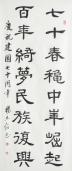 七十春穐中華崛起
百年綺夢民族復興
慶祝建國七十周年